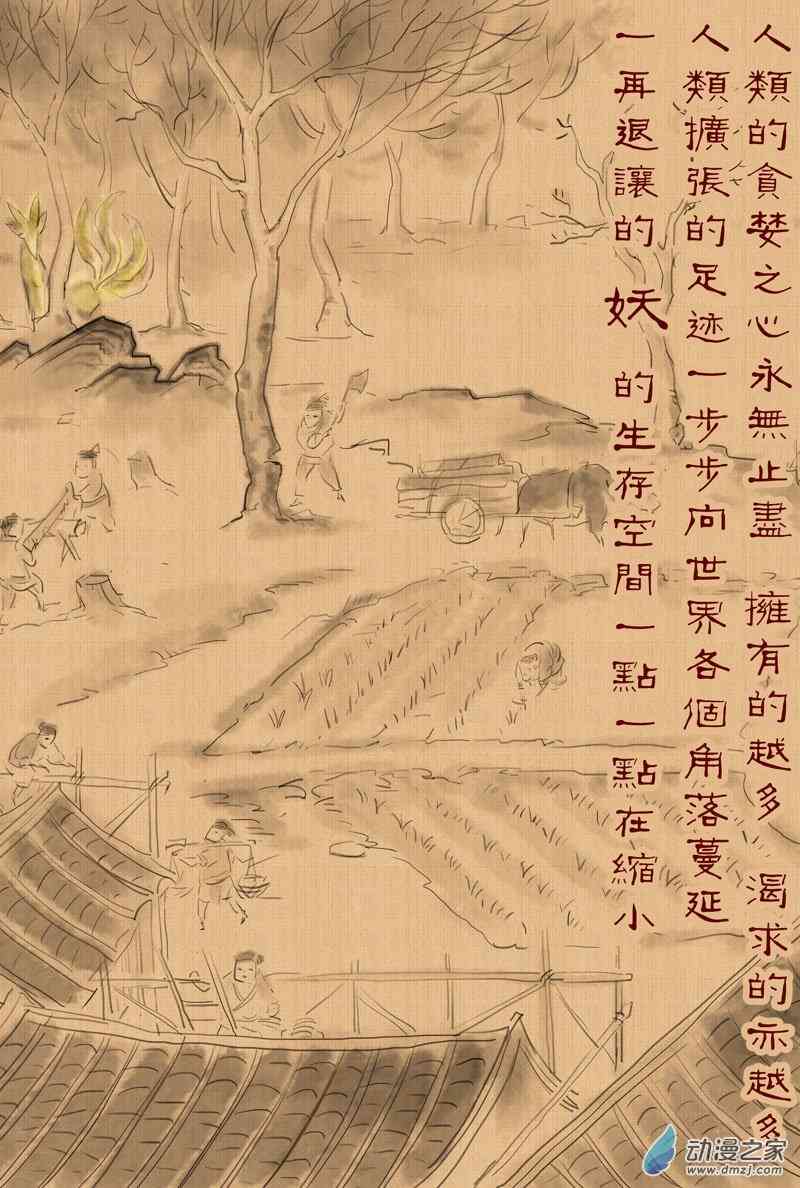 人類的貪婪之心永無止盡 擁有的越多 渴求的亦越多
人類擴張的足迹一步步向世界各個角落蔓延
一再退讓的 妖 的生存空間一點一點在縮小
动漫之家
www.dmzj.com